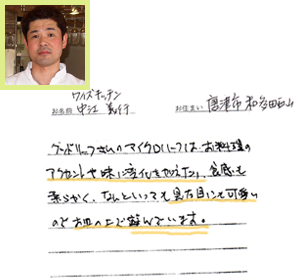 ワイズキッチン
お名前 中江 義行
お住まい 唐津市 和多田西山
グッドリーフさんのマイクロリーフは、お料理の
アクセントや味に変化を加えたり、食感も
柔らかく、なんといっても見た目にも可愛い
のでお皿の上で 喜んでいます。